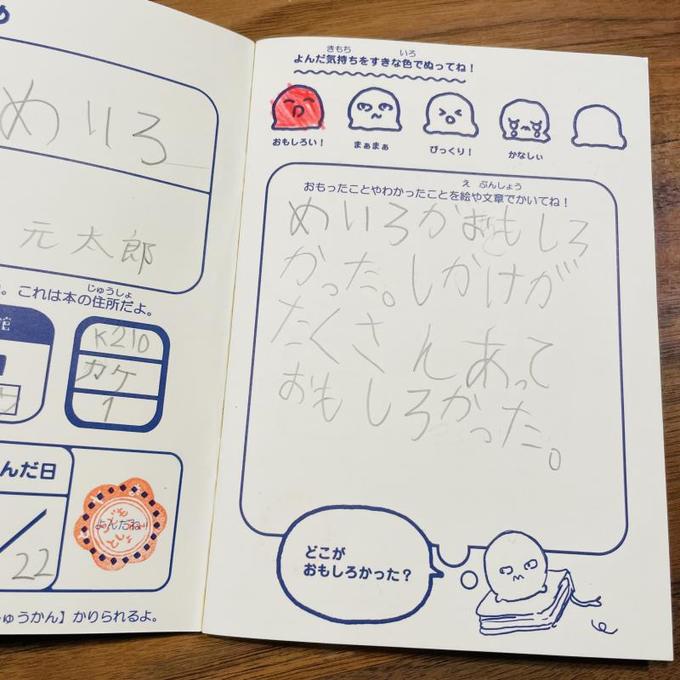 め
めいろ
元太郎
。これは本の住所だよ。
じゅうしょ
館
K210
カケ
1
んだ日
／22
よんだね!!
ゅうかん】かりられるよ。
きもち いろ
よんだ気持ちをすきな色でぬってね！
おもしろい！ まぁまぁ びっくり！ かなしぃ
え ぶんしょう
おもったことやわかったことを絵や文章でかいてね！
めいろがおもしろ
かった。しかけが
たくさんあって
おもしろかった。
どこが
おもしろかった？